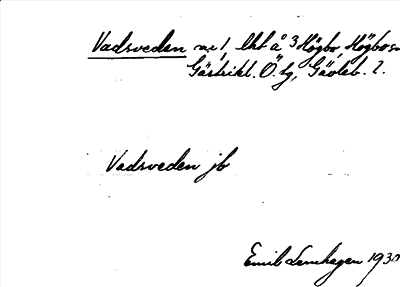 Vadsveden nr 1, lht å 3 Högbo, Högbo sn
Gästrikl. Ö. tg, Gävleb. l.
Vadsveden jb
Emil Lenhagen 1930